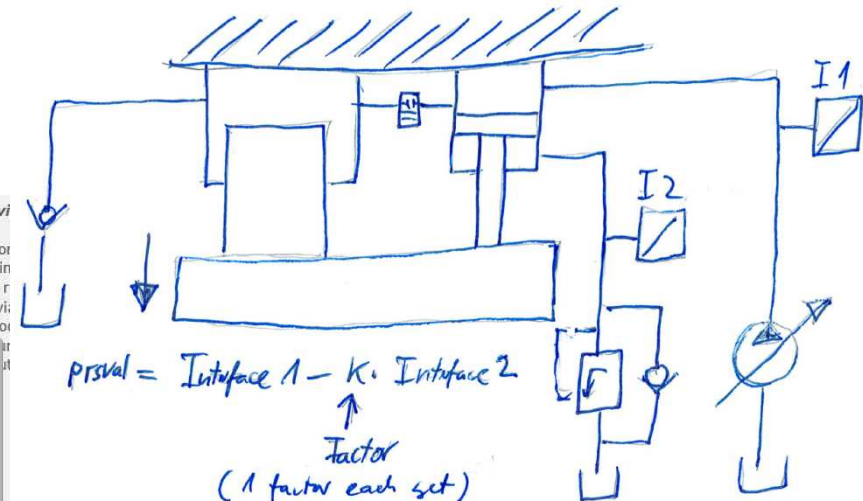 I1
I2
prsval = Interface 1 – K. Interface 2
Factor
(1 factor each set)